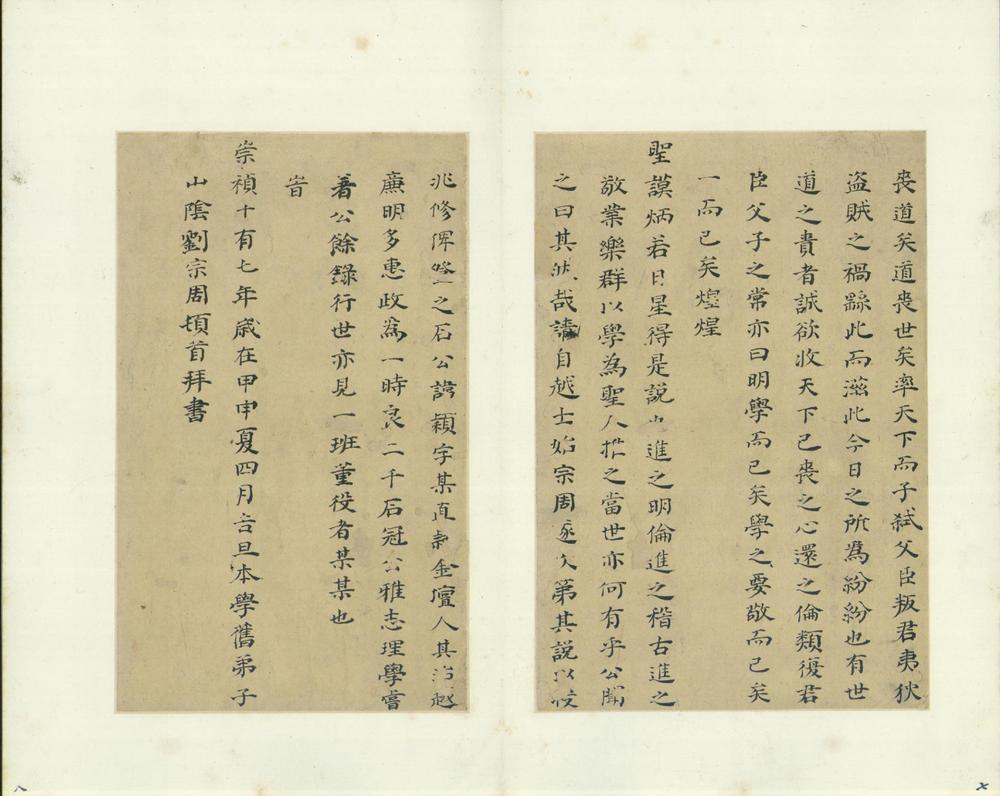 喪道矣道喪世矣率天下而子弒父臣叛君夷狄
盜賊之禍繇此而滋此今日之所為紛紛也有世
道之責者誠欲收天下已喪之心還之倫類復君
臣父子之常亦曰明學而已矣學之要敬而已矣
一而已矣煌煌
聖謨炳若日星得是說也進之明倫進之稽古進之
敬業樂群以學為聖人推之當世亦何有乎公聞
之曰其然哉請自越士始宗周遂次第其說以
兆修俾 之石公諱穎字某直 金壇人其治越
廉明多惠政為一時良二千石冠公雅志理學嘗
著公餘錄行世亦見一班董役者某某也
旹
崇禎十有七年歲在甲申夏四月吉旦本學舊弟子
山陰劉宗周頓首拜書
七
八